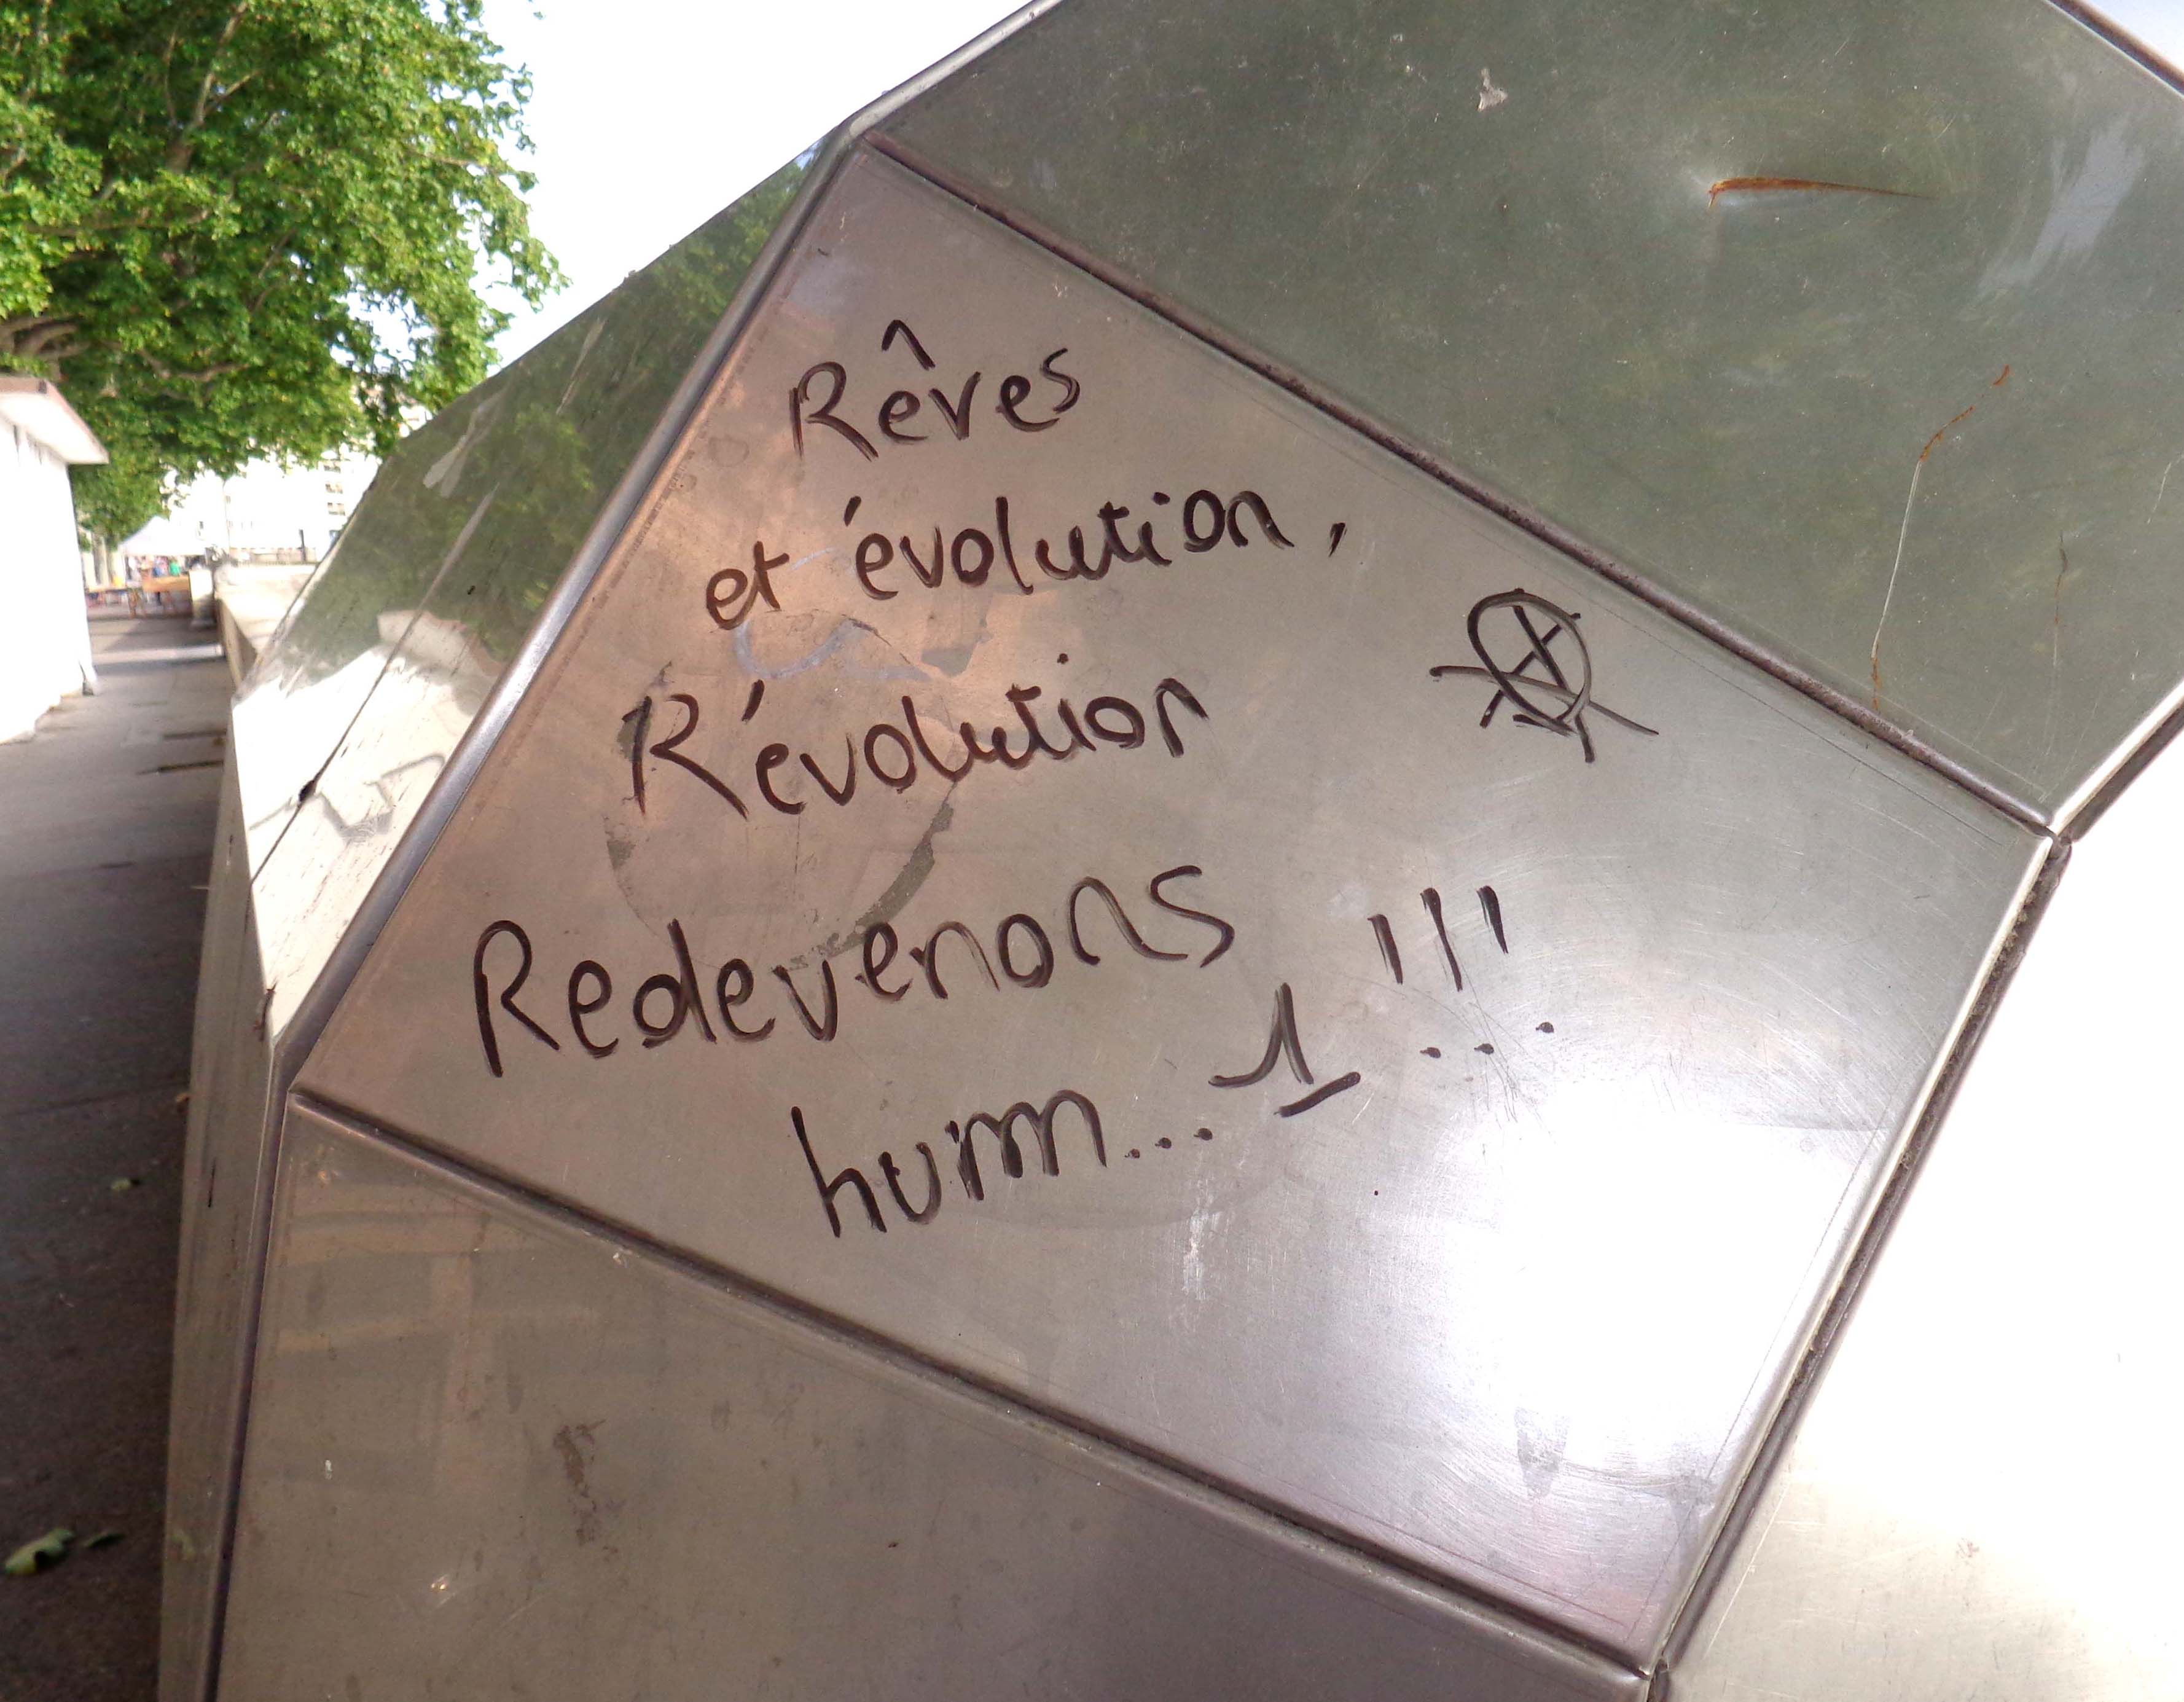 Rêves
et évolution,
Révolution
Redevenons
humn... 1 !!!